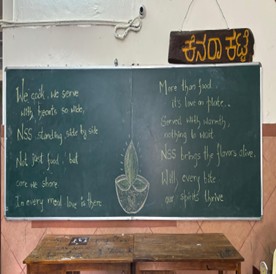 ಕೆನರಾ ಕಟ್ಟೆ
We cook, we serve
with hearts so wide,
NSS standing side by side
Not just food, but
care we share
In every meal love is there
More than food
its love on plate..
Served with warmth,
nothing to wait
NSS brings the flavors alive,
With every bite
our spirits thrive